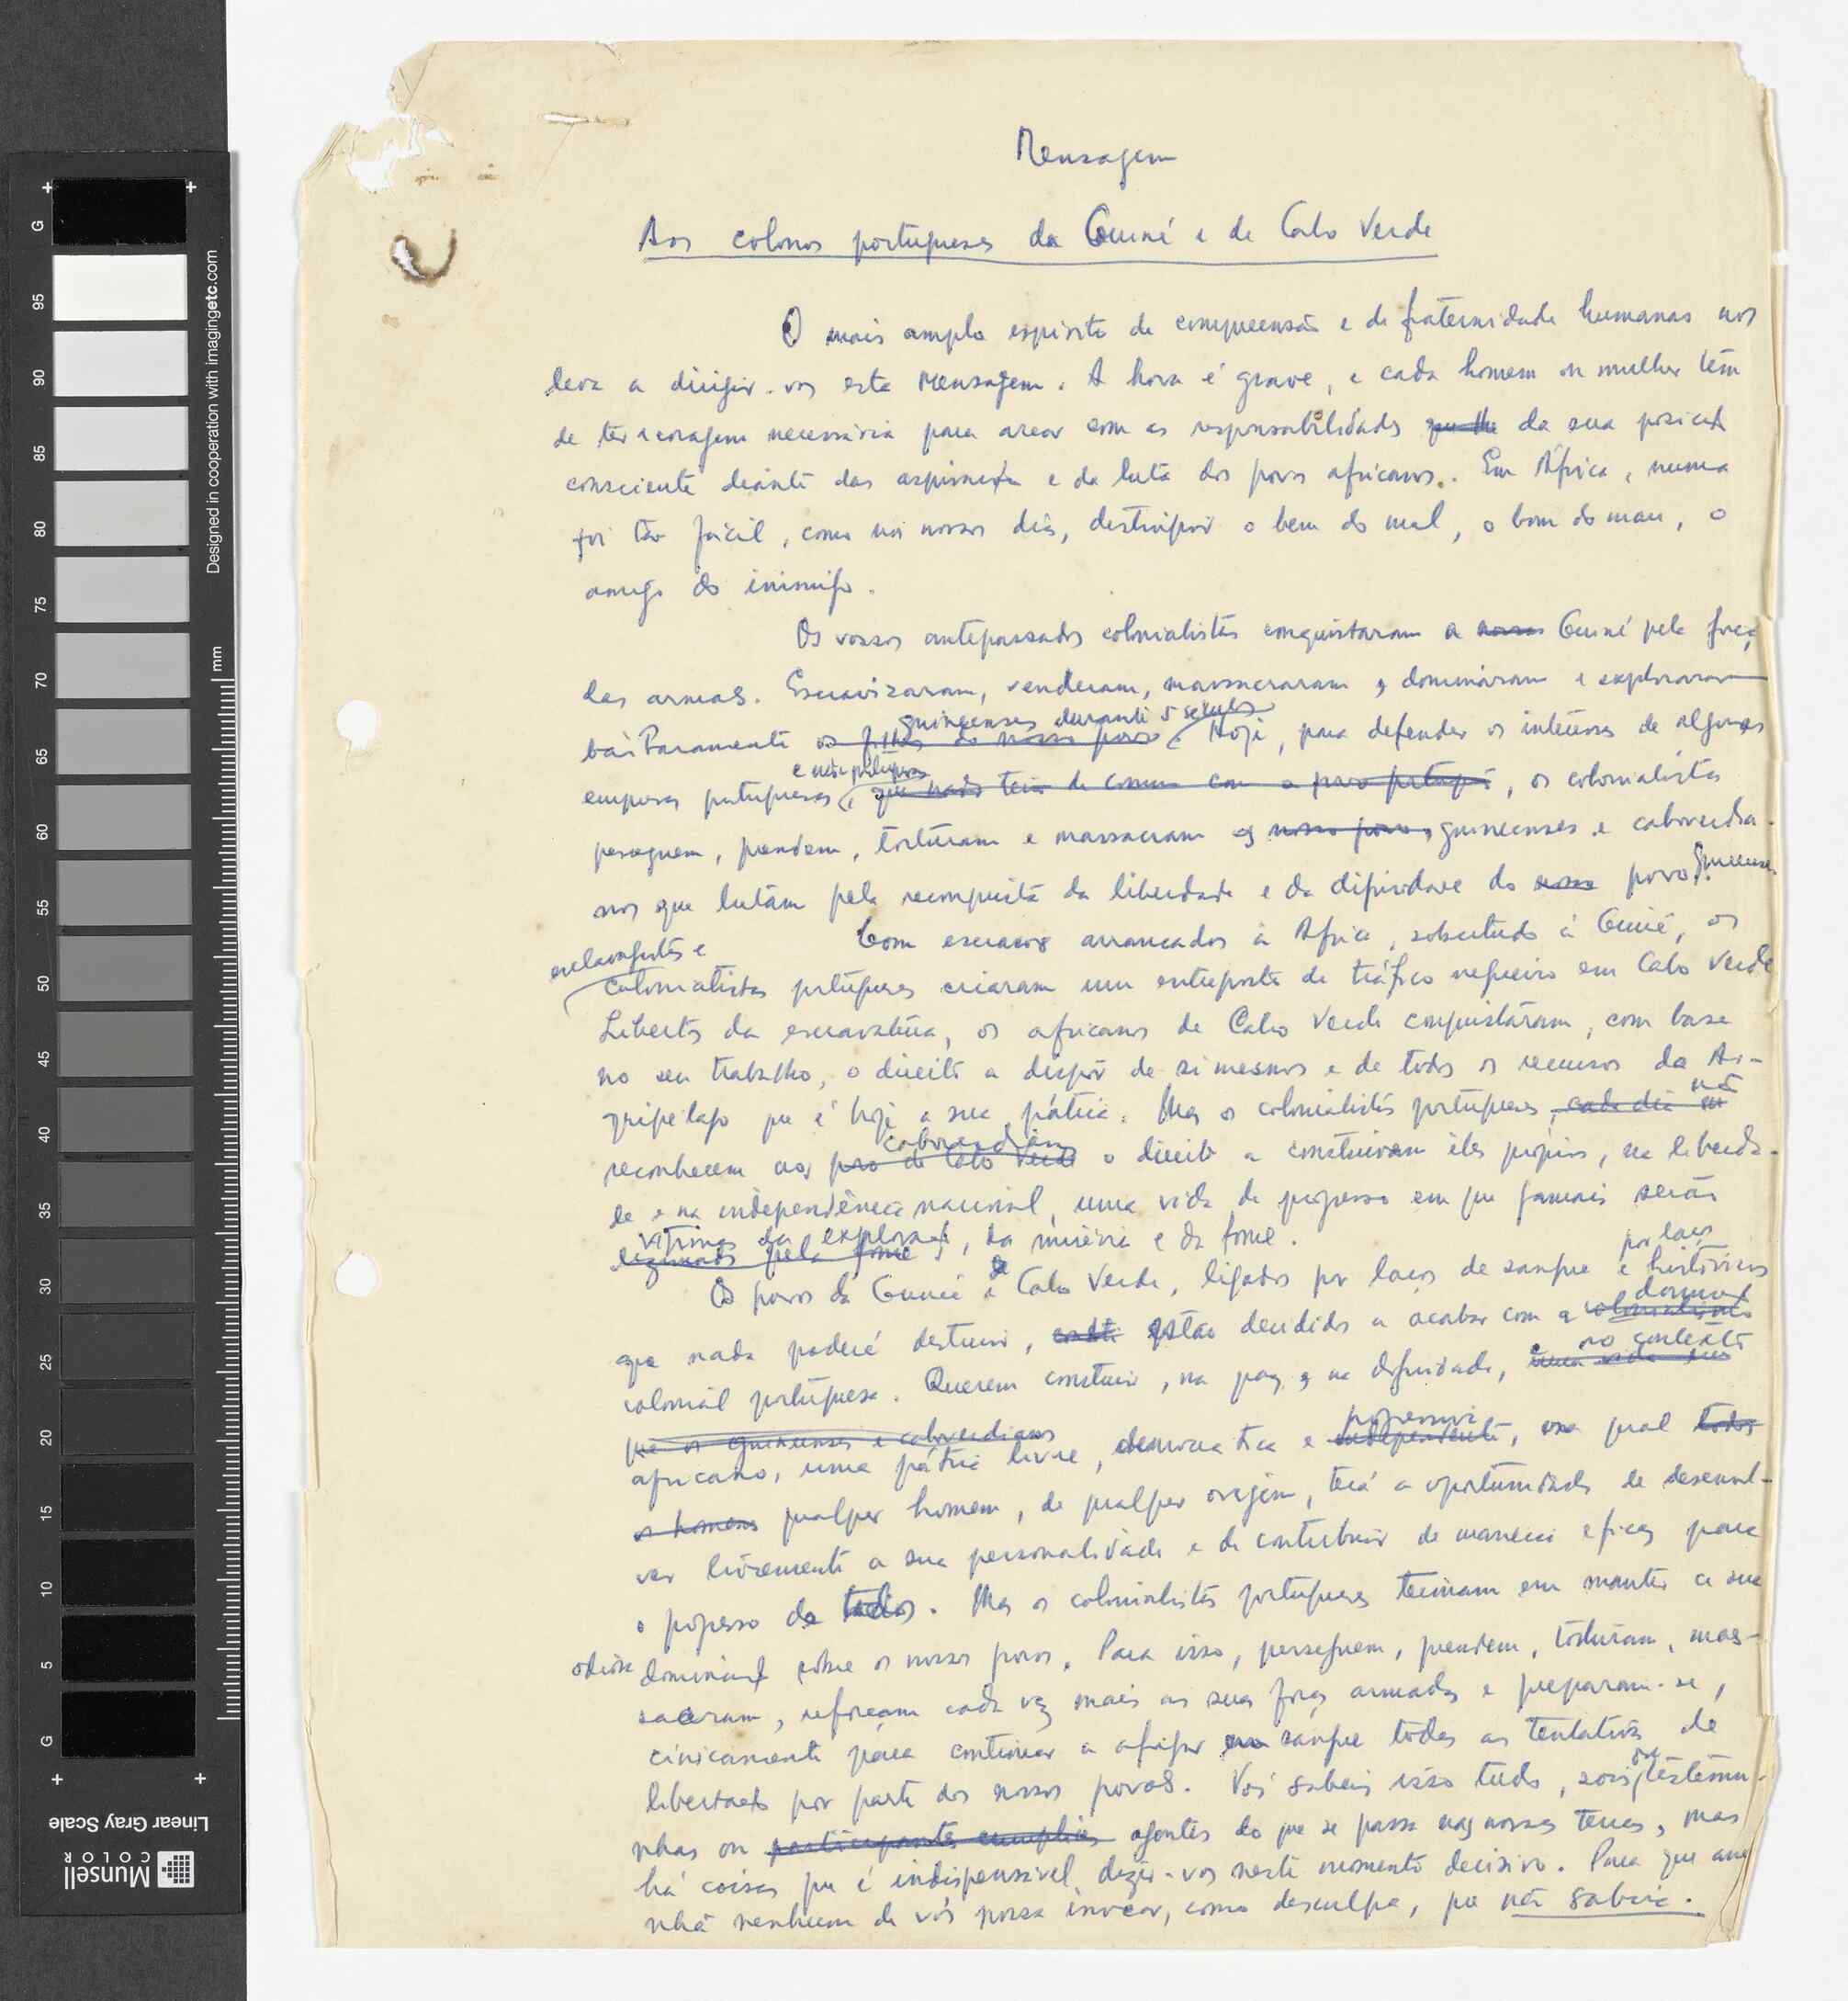 Mensagem
Aos colonos portugueses da Guiné e de Cabo Verde
O mais amplo espírito de compreensão e de fraternidade humanas nos
leva a dirigir-vos esta Mensagem. A hora é grave, e cada homem ou mulher têm
de ter a coragem necessária para arcar com as responsabilidades da sua posição
consciente diante das aspirações e da luta dos povos africanos. Em África, nunca
foi tão fácil, como nos nossos dias, destinguir o bem do mal, o bom do mau, o
amigo do inimigo.
Os vossos antepassados colonialistas conquistaram a nossa Guiné pela força
das armas. Escravizaram, venderam, massacraram, dominaram e exploraram
guineenses durante 5 séculos
bàrbaramente os filhos do nosso povo. Hoje, para defender os interesses de algumas
e não portuguesas
empresas portuguesas, que nada tem de comum com o povo português, os colonialistas
perseguem, prendem, torturam e massacram os nosso povo, guineenses e caboverdia-
nos que lutam pela reconquista da liberdade e da dignidade do nosso povo guineense.
Com escravos arrancados à África, sobretudo à Guiné, os
esclavagistas e
colonialistas portugueses criaram um entreposto de tráfico negreiro em Cabo Verde
Libertos da escravatura, os africanos de Cabo Verde conquistaram, com base
no seu trabalho, o direito a dispôr de si mesmos e de todos os recursos do Ar-
não
quipélago que é hoje a sua pátria. Mas os colonialistas portugueses, cada dia
caboverdianos
reconhecem aos povo de Cabo Verde o direito a construirem êles próprios, na liberda-
de e na independência nacional, uma vida de progresso em que jamais serão
vítimas da exploração, da miséria e da fome.
dizimados pela fome
por laços
Os povos da Guiné e de Cabo Verde, ligados por laços de sangue e históricos
dominação
que nada poderá destruir, estão decididos a acabar com a colonialismo
no contexto
colonial portuguesa. Querem construir, na paz e na dignidade, uma vida
que os guineenses e caboverdianos
progressiva
africano, uma pátria livre, democrática e independente, na qual todos
os homens qualquer homem, de qualquer origem, terá a oportunidade de desenvol-
ver livremente a sua personalidade e de contribuir de maneira eficaz para
o progresso de todos. Mas os colonialistas portugueses teimam em manter a sua
odiosa dominação sôbre os nossos povos. Para isso, perseguem, prendem, torturam, mas-
sacram, reforçam cada vez mais as suas forças armadas e preparam-se,
cinicamente para continuar a afogar em sangue todas as tentativas de
libertação por parte dos nossos povos. Vós sabeis isso tudo, sois testemu-
nhas ou participantes cumplices agentes do que se passa nas nossas terras, mas
há coisas que é indispensável dizer-vos neste momento decisivo. Para que ama-
nhã nenhum de vós possa invocar, como desculpa, que não sabia.
Designed in cooperation with imagingetc.com
mm
G
95
90
85
80
75
70
65
60
55
50
45
40
35
30
25
20
15
10
5
G
Linear Gray Scale
Munsell
COLOR